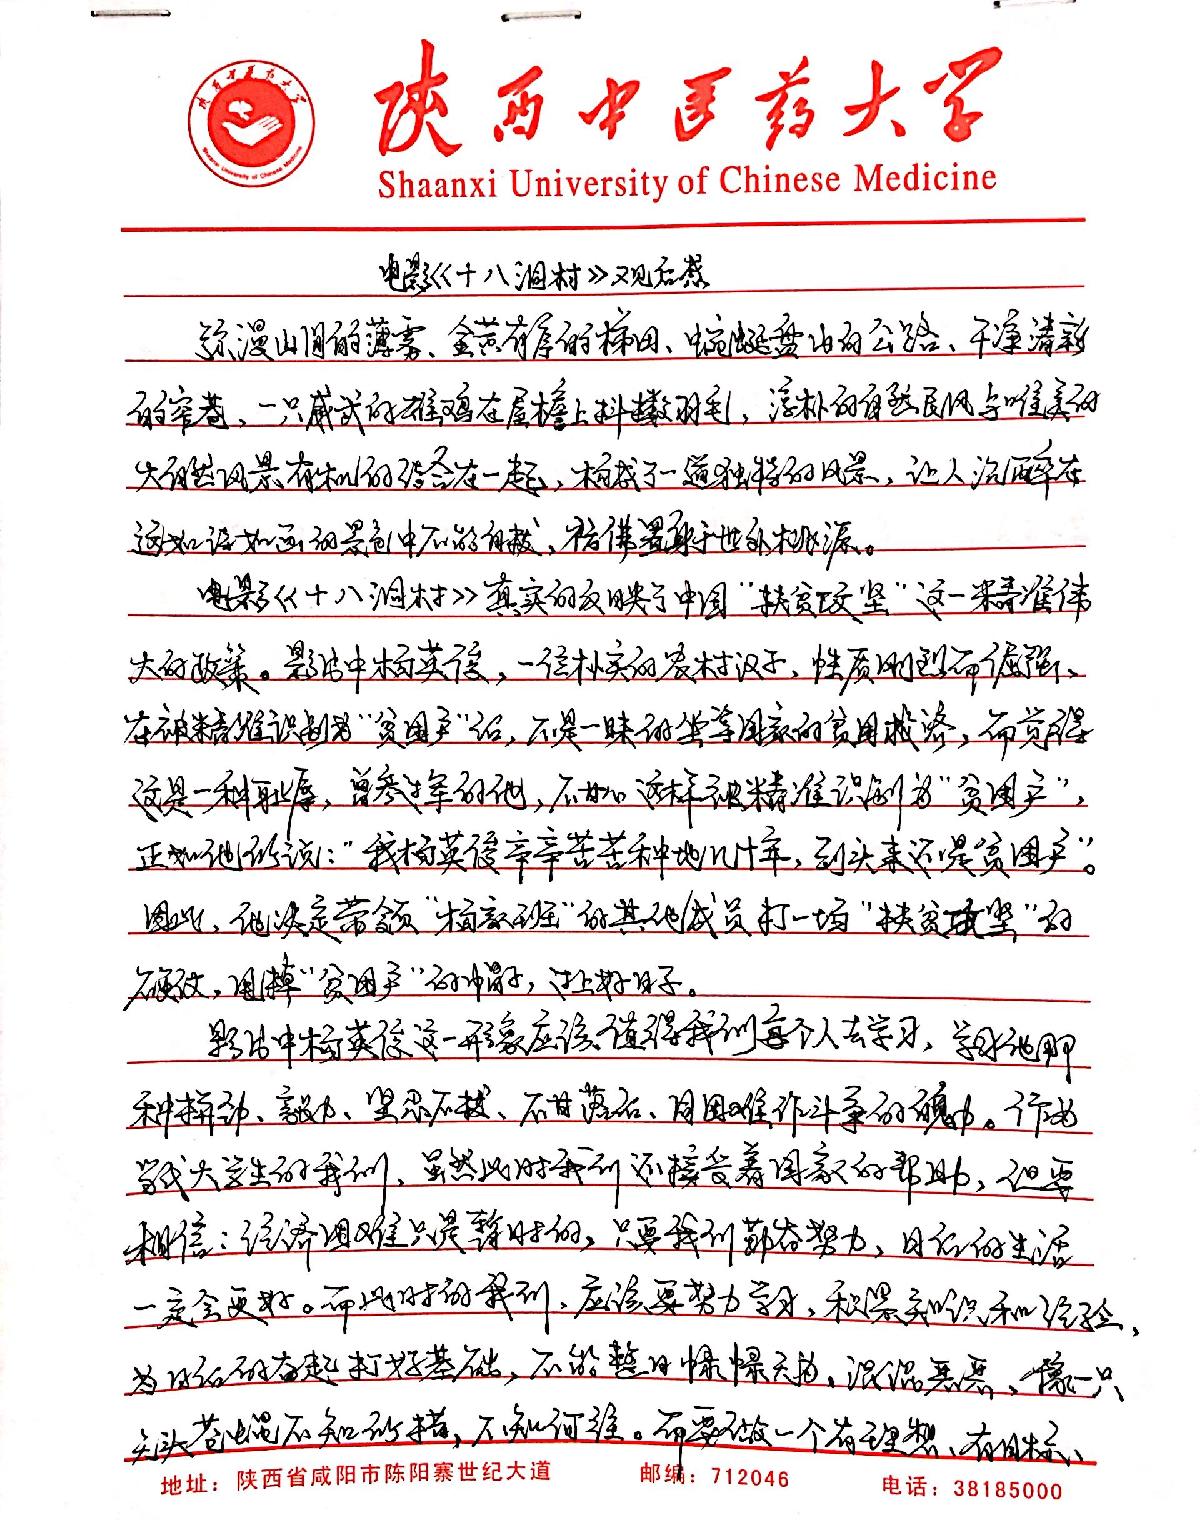 陕西中医药大学
Shaanxi University of Chinese Medicine
电影《十八洞村》观后感
弥漫山间的薄雾、金黄有序的梯田、蜿蜒盘山的公路、干净清新
的窄巷，一只威武的雄鸡在屋檐上抖擞羽毛，淳朴的自然民风与唯美的
大自然风景有机的结合在一起，构成了一道独特的风景，让人沉醉在
这如诗如画的景色中不能自拔，彷佛置身于世外桃源。
电影《十八洞村》真实的反映了中国“扶贫攻坚”这一精准伟
大的政策。影片中杨英俊，一位朴实的农村汉子，性质刚烈而倔强、
在被精准识别为“贫困户”后，不是一味的坐等国家的贫困救济，而觉得
这是一种耻辱，曾参过军的他，不甘心这样被精准识别为“贫困户”，
正如他所说：“我杨英俊辛辛苦苦种地几十年，到头来还是贫困户”。
因此，他决定带领“杨家班”的其他成员打一场“扶贫攻坚”的
硬仗，甩掉“贫困户”的帽子，过上好日子。
影片中杨英俊这一形象应该值得我们每个人去学习，学习他那
种拼劲、毅力、坚忍不拔、不甘落后、与困难作斗争的魄力。作为
当代大学生的我们，虽然此时我们还接受着国家的帮助，但要
相信：经济困难只是暂时的，只要我们勤奋努力，日后的生活
一定会更好。而此时的我们，应该要努力学习，积累知识和经验，
为日后的奋起打好基础，不能整日慷慷无为，混混恶恶，像一只
无头苍蝇不知所措，不知何往。而要做一个有理想、有目标、
地址：陕西省咸阳市陈阳寨世纪大道 邮编：712046 电话：38185000